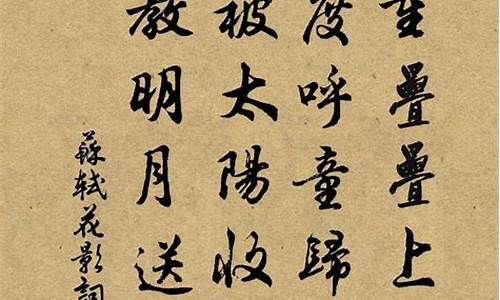 重疊疊上
度呼童歸
被太陽收
教明月送
蘇軾花影詞